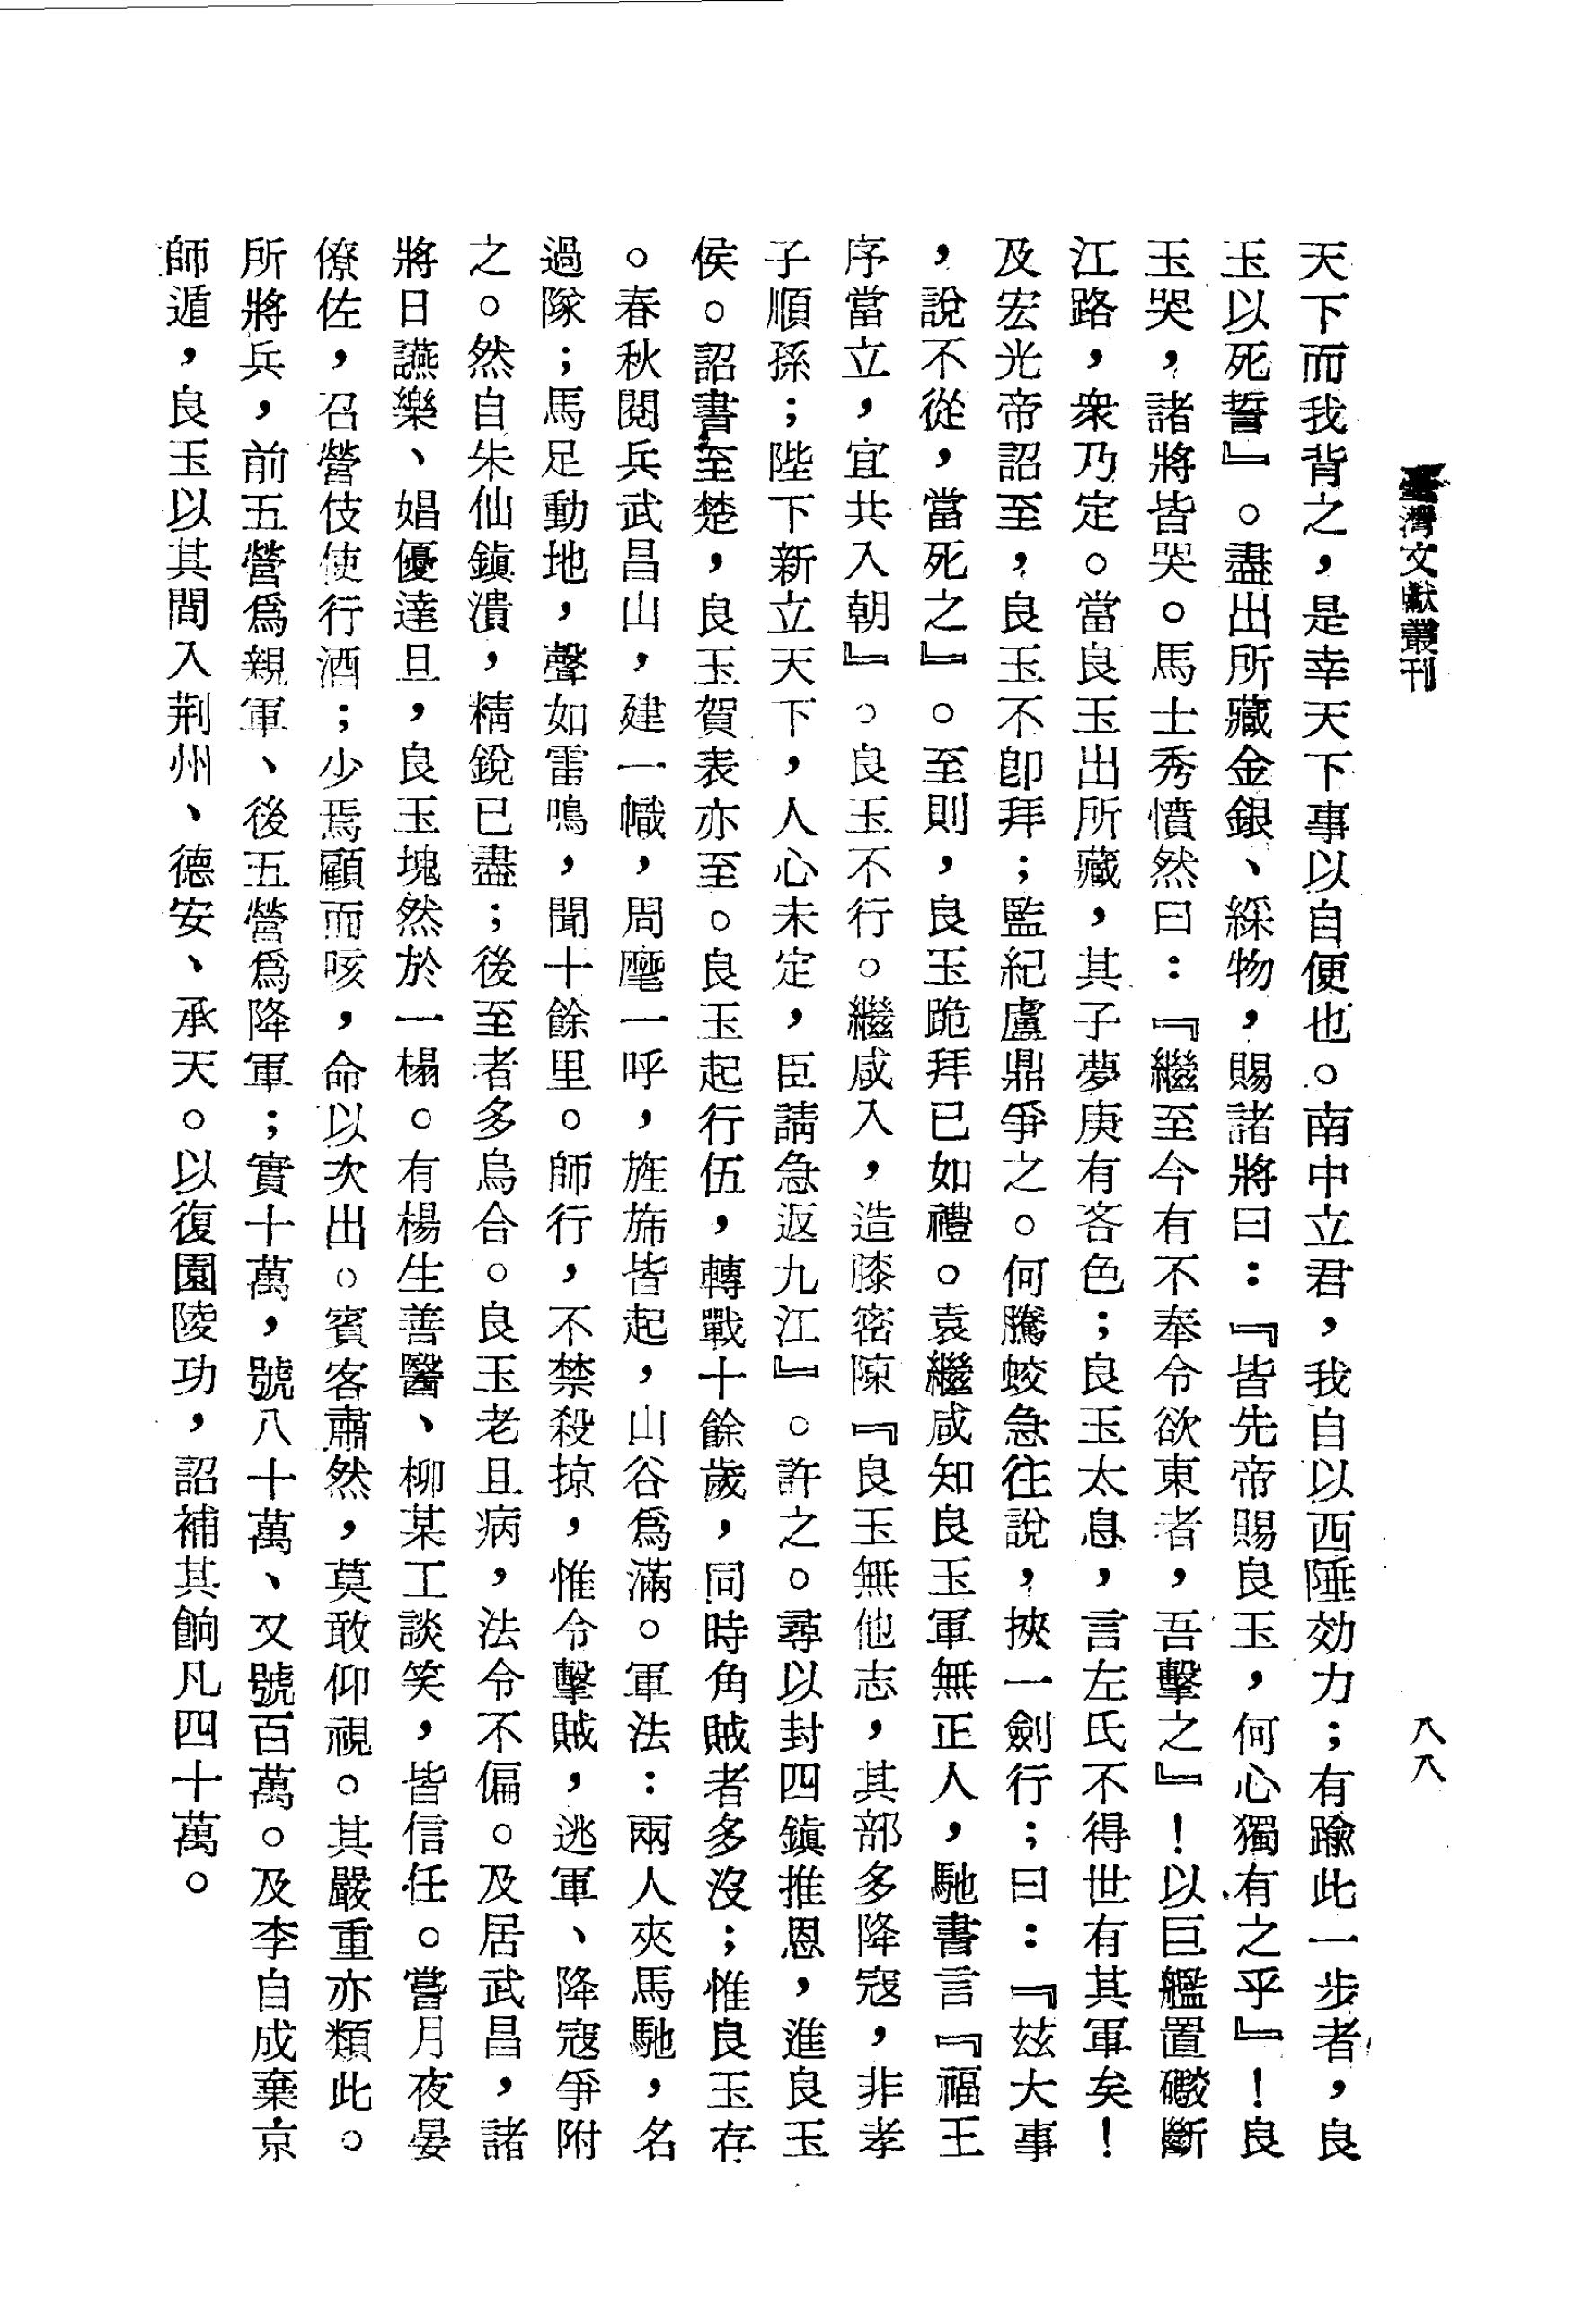 臺灣文獻叢刊
八八
天下而我背之，是幸天下事以自便也。南中立君，我自以西陲効力；有踰此一步者，良
玉以死誓』。盡出所藏金銀、綵物，賜諸將曰：『皆先帝賜良玉，何心獨有之乎』！良
玉哭，諸將皆哭。馬士秀憤然曰：『繼至今有不奉令欲東者，吾擊之』！以巨艦置礮斷
江路，衆乃定。當良玉出所藏，其子夢庚有吝色；良玉太息，言左氏不得世有其軍矣！
及宏光帝詔至，良玉不卽拜；監紀盧鼎爭之。何騰蛟急往說，挾一劍行；曰：『茲大事
，說不從，當死之』。至則，良玉跪拜已如禮。袁繼咸知良玉軍無正人，馳書言『福王
序當立，宜共入朝』。良玉不行。繼咸入，造膝密陳『良玉無他志，其部多降寇，非孝
子順孫；陛下新立天下，人心未定，臣請急返九江』。許之。尋以封四鎮推恩，進良玉
侯。詔書至楚，良玉賀表亦至。良玉起行伍，轉戰十餘歲，同時角賊者多沒；惟良玉存
。春秋閱兵武昌山，建一幟，周麾一呼，旌旆皆起，山谷爲滿。軍法：兩人夾馬馳，名
過隊；馬足動地，聲如雷鳴，聞十餘里。師行，不禁殺掠，惟令擊賊，逃軍、降寇爭附
之。然自朱仙鎮潰，精銳已盡；後至者多烏合。良玉老且病，法令不偏。及居武昌，諸
將日讌樂、娼優達旦，良玉塊然於一榻。有楊生善醫、柳某工談笑，皆信任。嘗月夜晏
僚佐，召營伎使行酒；少焉顧而咳，命以次出。賓客肅然，莫敢仰視。其嚴重亦類此。
所將兵，前五營爲親軍、後五營爲降軍；實十萬，號八十萬、又號百萬。及李自成棄京
師遁，良玉以其間入荆州、德安、承天。以復園陵功，詔補其餉凡四十萬。